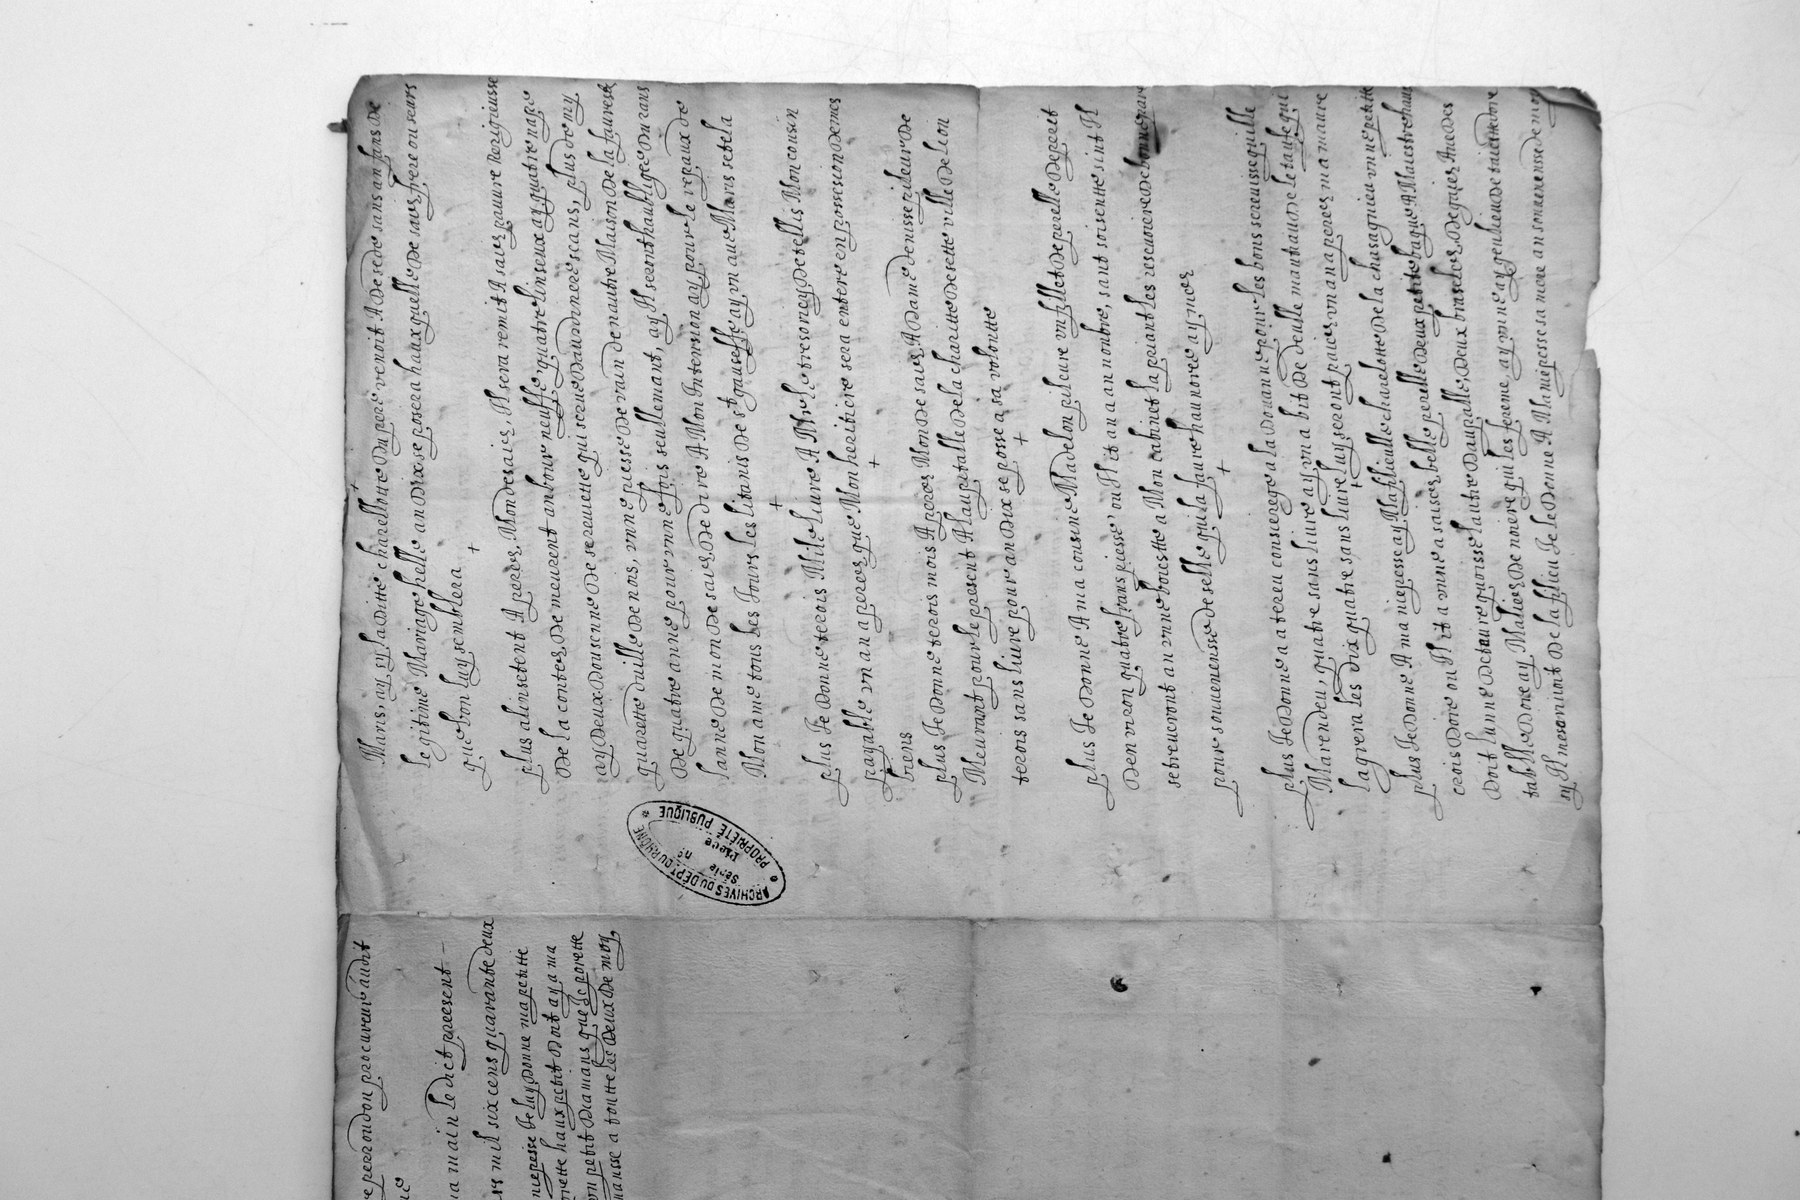 Maris, ay sy la ditte charellotte du pere venoit A desede sans anfans de
legitime Mariage helle an dixse posera haux quelle de saes frere ou seurs
que bon luy semblera
plus alinsetent A peres Mon desaies, Il sera remit A saies pauure Religieusse
de la contes de meurent an bour neuff quatre linseux ay quatre nape
ay deux dousenne de serviette qui serve d'au donnere seans, plus demy
quarette duille de nois, vnne piesse de vain de nautre Maison de la faverette
de quatre anne pour vnne fois seullemant, ay Il seront haubligee durans
lanne de mon de saies de dire A Mon Intension ay pour le repaux de
Mon ame tous les Jours les litanis de st gauseffe ay vn ave Maris stela
plus Je donne terois Mile liure A Mr le tresoriey de tellis Mon cousin
payable vn an a peres que Mon heriticire sera entere en possesion de mes
biens
plus Je donne terois mois A peres Mon de saies A dame denisse pileur de
Meurant pour le present A laupitalle de la charitte de sette ville de lion
terois sans liure pour an dixe se posse a sa volontte
plus Je donne A ma consinne Madelon pileure vn fillet de perelle de peret
den vron quatre frans piesse ou Il it an a an nonbre, sant soisentte sint Il
se treuveront an vnne bouestte a Mon cabinet la priant les resevoire de bonne part
pour souvenensse de selle qui la faure haunoree ay ymer
plus Je donne a tereu conserge a la douanne pour les bons serevisse quille
Ma rendeu, quatre sans liure ay vn a bit de deulle mantiau de letauffe qui
lagrera les dix quatre sans liure luy seront paies vn an a peres ma maure
plus Je donne A ma niepsse ay Ma filieulle charelotte de la chasagnie vnne petitte
cerois dore ou Il it a vnne a saises belle perelle deux petitte bague A Maustre haux
doit lunne de taurequoisse lautre daupalle, deux braseles de geies Avec des
tablle dore ay Malies de noiere qui les ferme, ay vnne ay geulieu de taurtte dore
sy Il ne se anoit de la plieu Je le donne A Ma niepsse sa mere an souvenensse de moy
e perroudon procureur audit
ma main le dict present
ns mil six cens quarante deux
niepesse Je luy donne ma petitte
orette haux petit doit ay a ma
vn petit dia mans que Je porette
nansse a toutte les deux de moy
ARCHIVES DU DÉPT DU RHÔNE
PROPRIÉTÉ PUBLIQUE
Série
no
Pièce